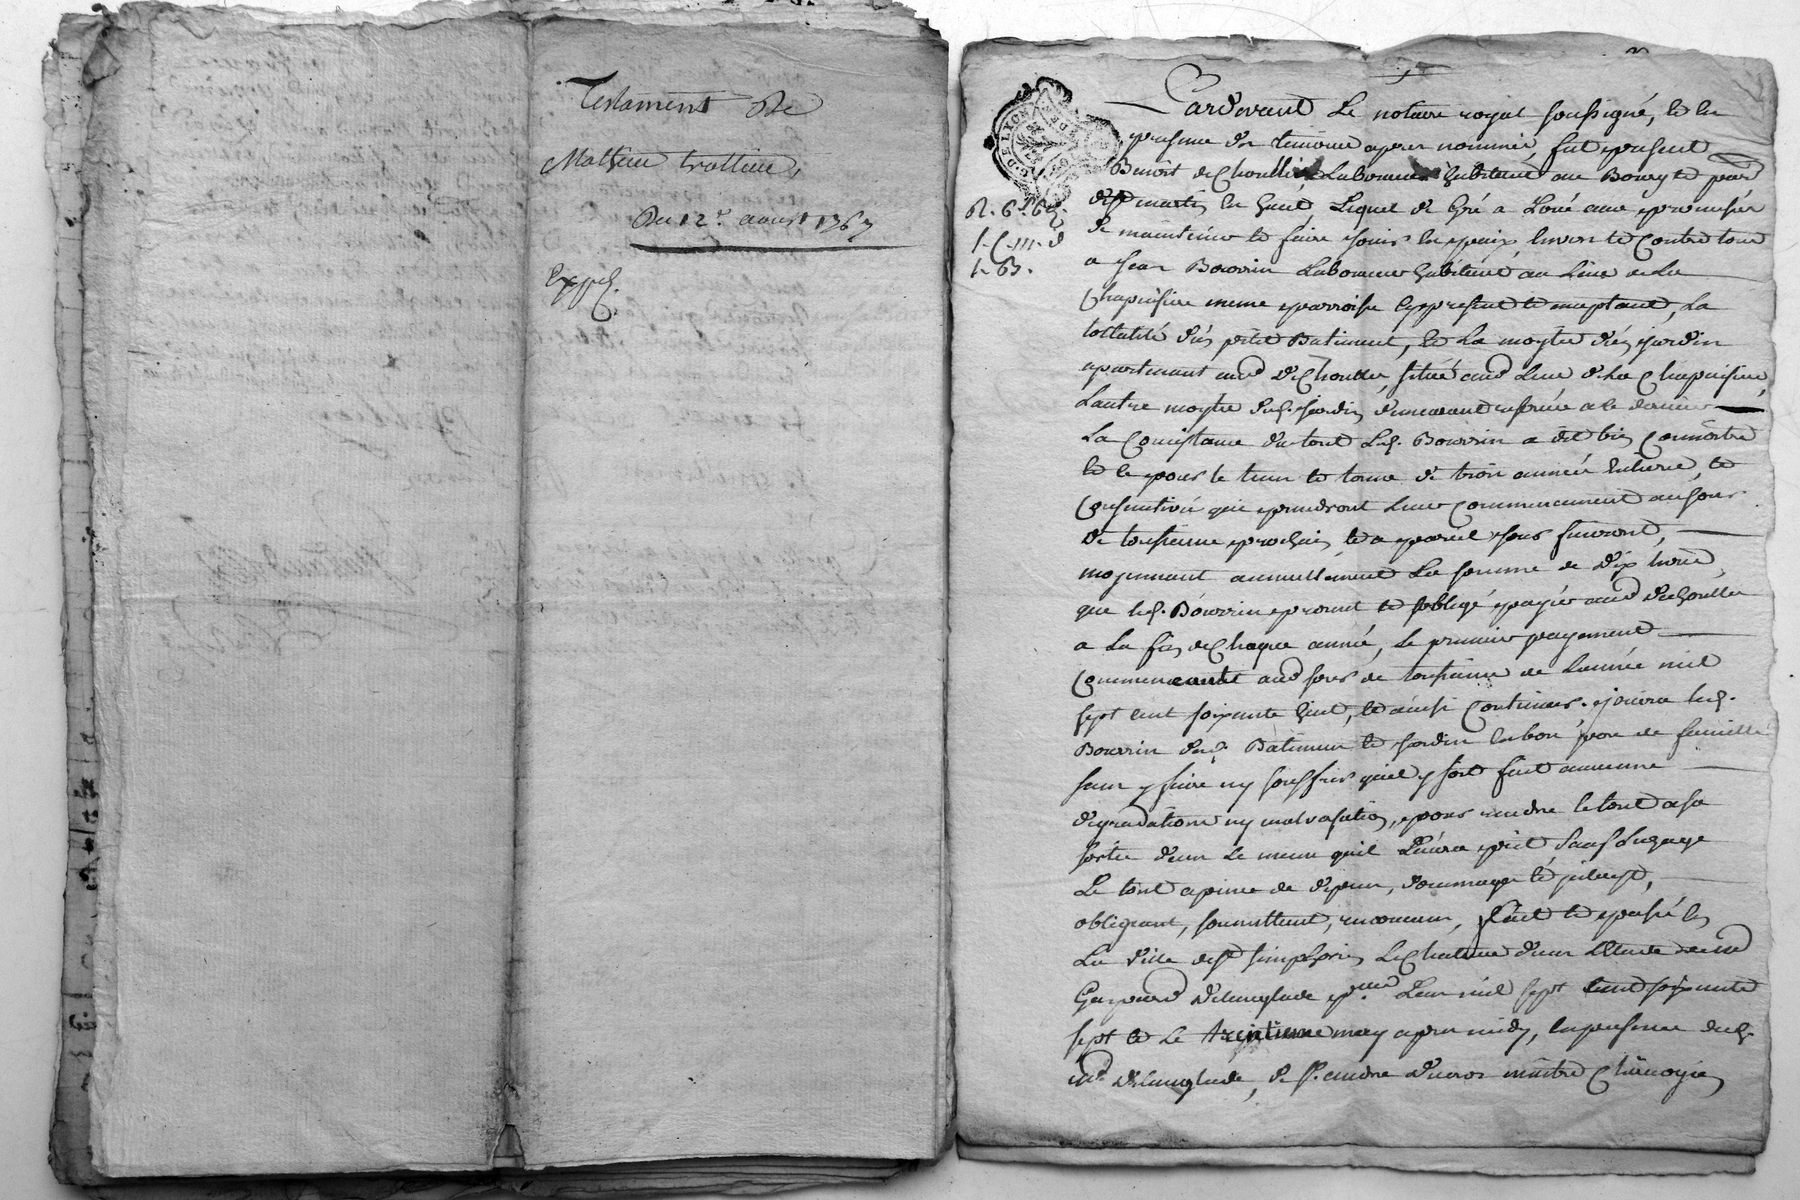 Testament de
Mathieu trottieu,
Du 12e aoust 1767
Exped.
Pardevant Le notaire royal soussigné, et en
presence des temoins apres nommés, fut present
Benoit Laboureur habitant au Bourg et
de st martin en haut, Lequel de gré a Loué avec promesse
R. 6
de maintenir et faire jouir en paix envers et contre tous
a jean Bourrin Laboureur habitant au Lieu de La
1. B.
Chapuisiere meme parroisse present et acceptant, La
tottalité d'un petit Batiment, et La moytié d'un jardin
apartenant aud dechoulle, situé aud Lieu de La Chapuisiere,
Lautre moytié dud. jardin demeurant reservée a ce dernier
La Consistance du tout Led. Bourrin a dit bien Connoitre
et ce pour le tems et terme de trois années entieres, et
Consecutives qui prendront Leur Commencement au jour
de toussaint prochain et a pareil jour finiront,
moyennant annuellement La somme de dix
que led. Bourrin promet et soblige payer aud dechoulle
a La fin de Chaque année, Le premier payement
Commencant aud jour de toussaint de Lannée mil
sept cent soixante huit, et ainsi Continuer. jouira led.
Bourrin dud. Batiment et jardin en bon pere de famille
sans y faire ny souffrir quil y soit fait aucunne
degradations ny malversation, pour rendre le tout a sa
sortie dans Le meme quil Laura prit sauf Lusage
Le tout a peine de depens, dommages et interest,
obligeant, soumettant, renonceant, fait et passé en
La ville de st simphorien Le Chateau dans LEtude de me
Gaspard Delanglade Lan mil sept cent soixante
sept et Le trentieme may apres midy, en presence dud.
me Delanglade, de sr. andré ducros maitre Chirurgien